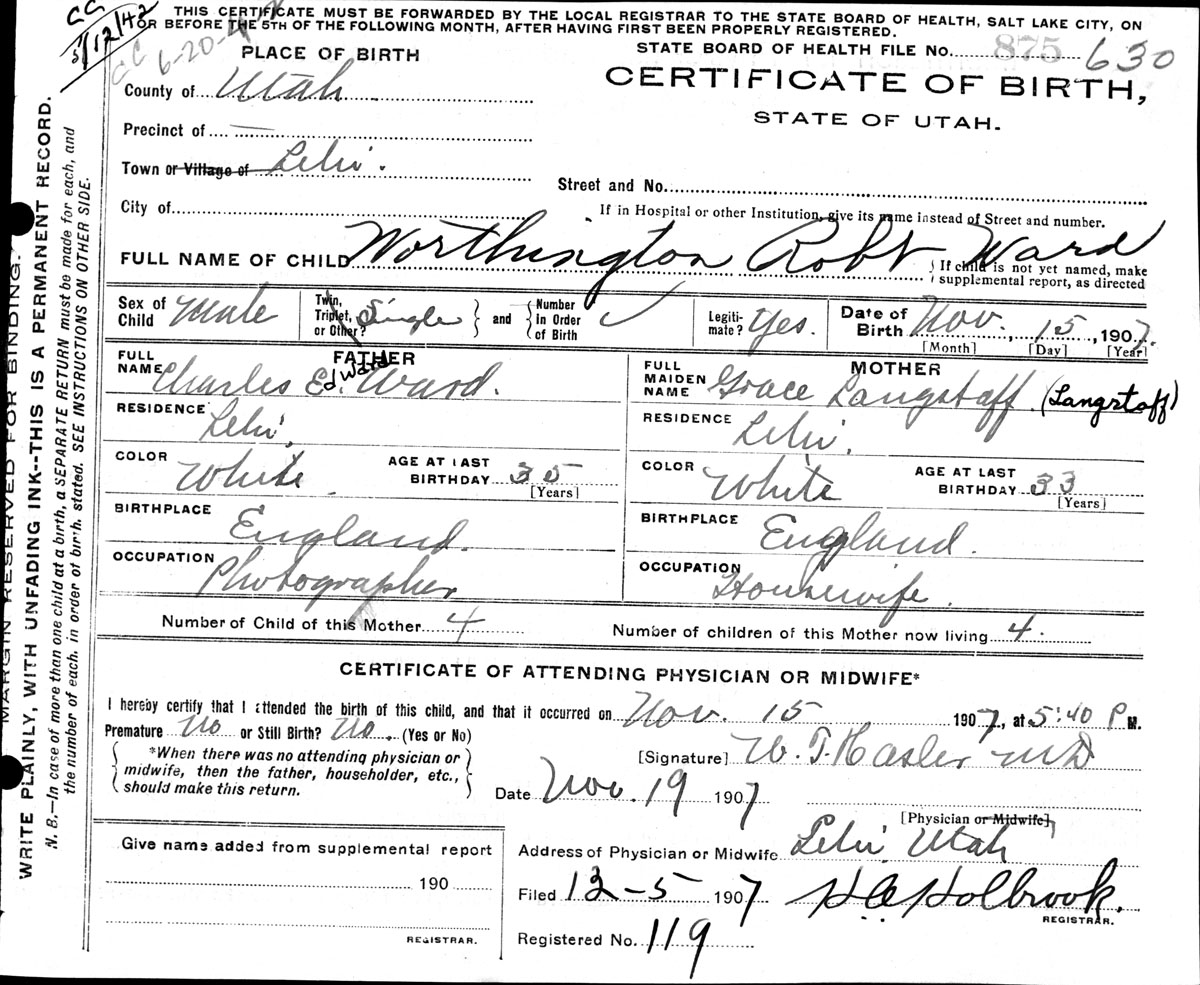 CC
5/12/42
CC
6-20-4
THIS CERTIFICATE MUST BE FORWARDED BY THE LOCAL REGISTRAR TO THE STATE BOARD OF HEALTH, SALT LAKE CITY, ON
OR BEFORE THE 5TH OF THE FOLLOWING MONTH, AFTER HAVING FIRST BEEN PROPERLY REGISTERED.
PLACE OF BIRTH
STATE BOARD OF HEALTH FILE No. 875 630
CERTIFICATE OF BIRTH,
STATE OF UTAH.
County of Utah
Precinct of —
Town or Village of Lehi.
Street and No.
City of
If in Hospital or other Institution, give its name instead of Street and number.
FULL NAME OF CHILD Worthington Robt Ward
If child is not yet named, make
supplemental report, as directed
Sex of Child Male
Twin, Triplet, or Other? Single and Number in Order of Birth
Legiti-mate? Yes.
Date of Birth Nov. 15, 1907.
[Month] [Day] [Year]
FATHER
FULL NAME Charles Edward Ward.
RESIDENCE Lehi.
COLOR White
AGE AT LAST BIRTHDAY 35
[Years]
BIRTHPLACE England.
OCCUPATION Photographer
MOTHER
FULL MAIDEN NAME Grace Langstaff. (Langstaff)
RESIDENCE Lehi.
COLOR White
AGE AT LAST BIRTHDAY 33
[Years]
BIRTHPLACE England.
OCCUPATION Housewife.
Number of Child of this Mother 4
Number of children of this Mother now living 4.
CERTIFICATE OF ATTENDING PHYSICIAN OR MIDWIFE*
I hereby certify that I attended the birth of this child, and that it occurred on Nov. 15 1907, at 5:40 P M.
Premature No or Still Birth? No. (Yes or No)
*When there was no attending physician or
midwife, then the father, householder, etc.,
should make this return.
[Signature] W. T. Hasler MD
Date Nov. 19 1907
[Physician or Midwife]
Give name added from supplemental report
190
REGISTRAR.
Address of Physician or Midwife Lehi Utah
Filed 12-5 1907 H C Holbrook.
REGISTRAR.
Registered No. 119
MARGIN RESERVED FOR BINDING.
WRITE PLAINLY, WITH UNFADING INK--THIS IS A PERMANENT RECORD.
N. B.—In case of more than one child at a birth, a SEPARATE RETURN must be made for each, and
the number of each, in order of birth, stated. SEE INSTRUCTIONS ON OTHER SIDE.